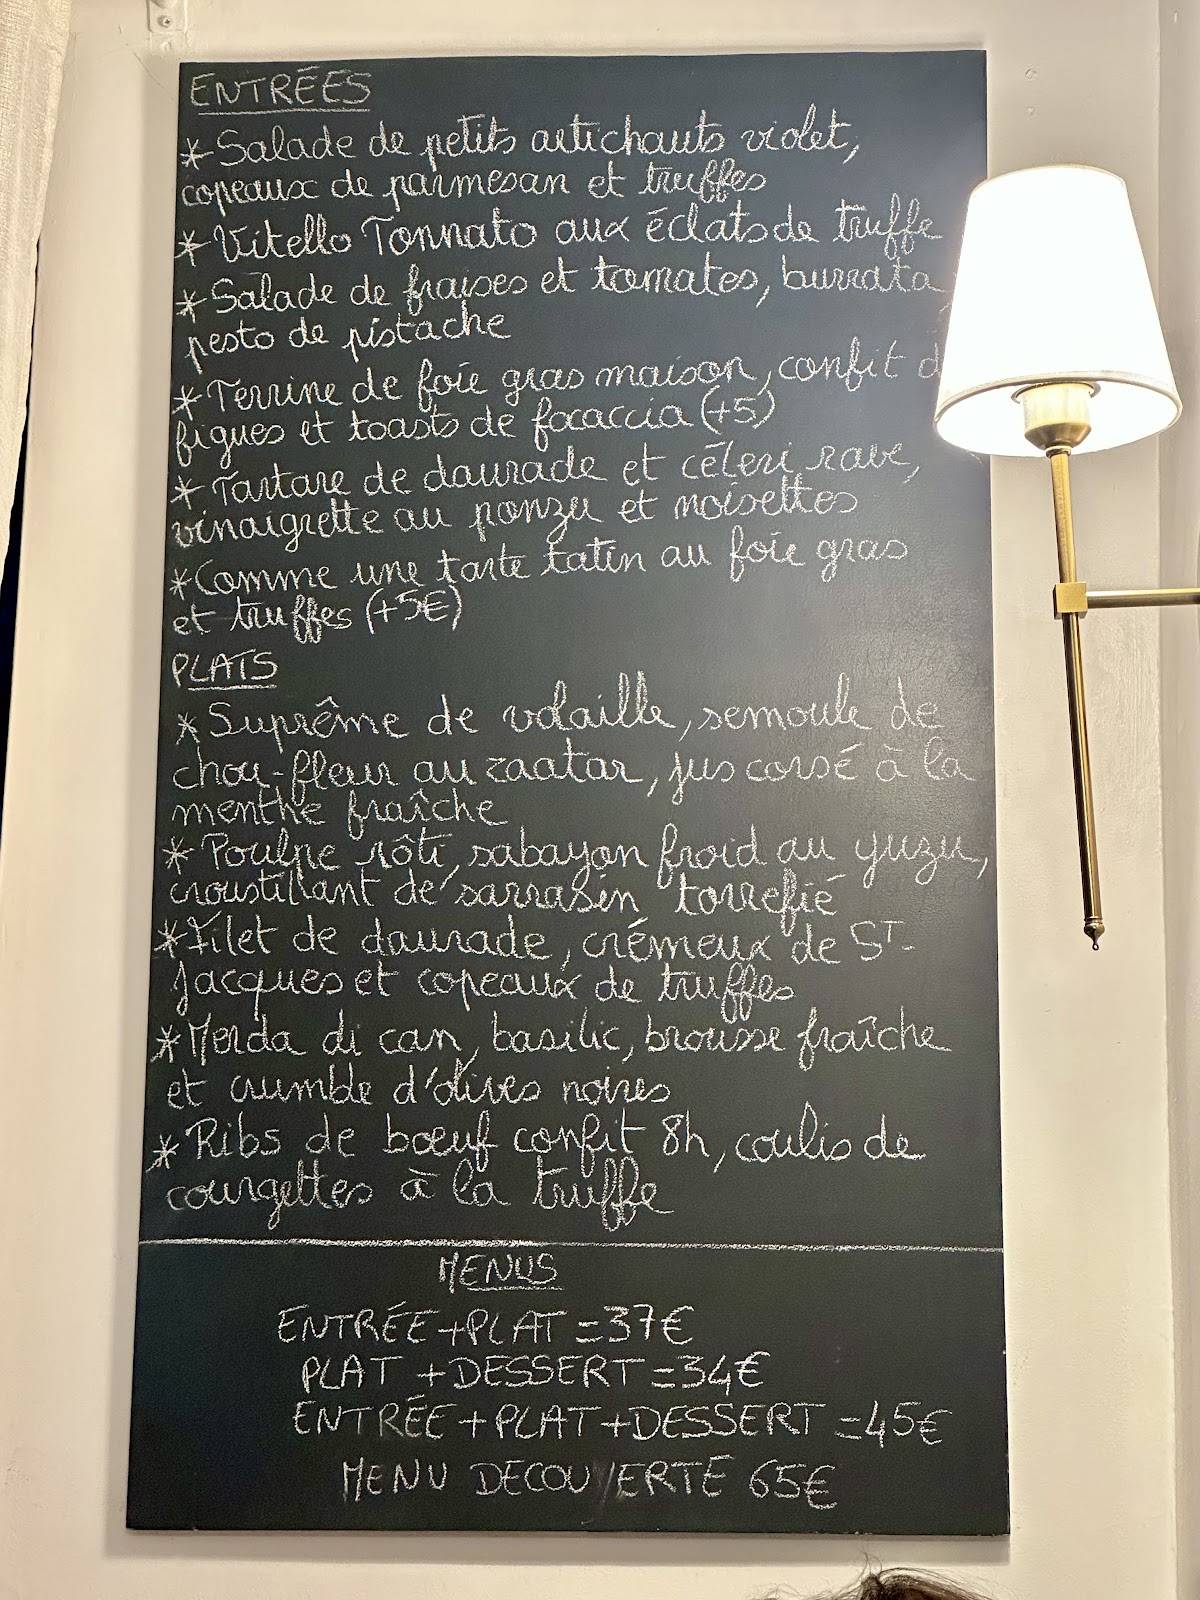 ENTRÉES
*Salade de petits artichauts violet,
copeaux de parmesan et truffes
*Vitello Tonnato aux éclats de truffe
*Salade de fraises et tomates, burrata
pesto de pistache
*Terrine de foie gras maison, confit d
figues et toasts de focaccia (+5)
*Tartare de daurade et céleri rave,
vinaigrette au ponzu et noisettes
*Comme une tarte tatin au foie gras
et truffes (+5€)
PLATS
*Suprême de volaille, semoule de
chou-fleur au zaatar, jus corsé à la
menthe fraîche
*Poulpe rôti, sabayon froid au yuzu,
croustillant de sarrasin torréfié
*Filet de daurade, crémeux de ST-
Jacques et copeaux de truffes
*Merda di can, basilic, brousse fraîche
et crumble d'olives noires
*Ribs de bœuf confit 8h, coulis de
courgettes à la truffe
MENUS
ENTRÉE+PLAT=37€
PLAT+DESSERT=34€
ENTRÉE+PLAT+DESSERT=45€
MENU DECOUVERTE 65€